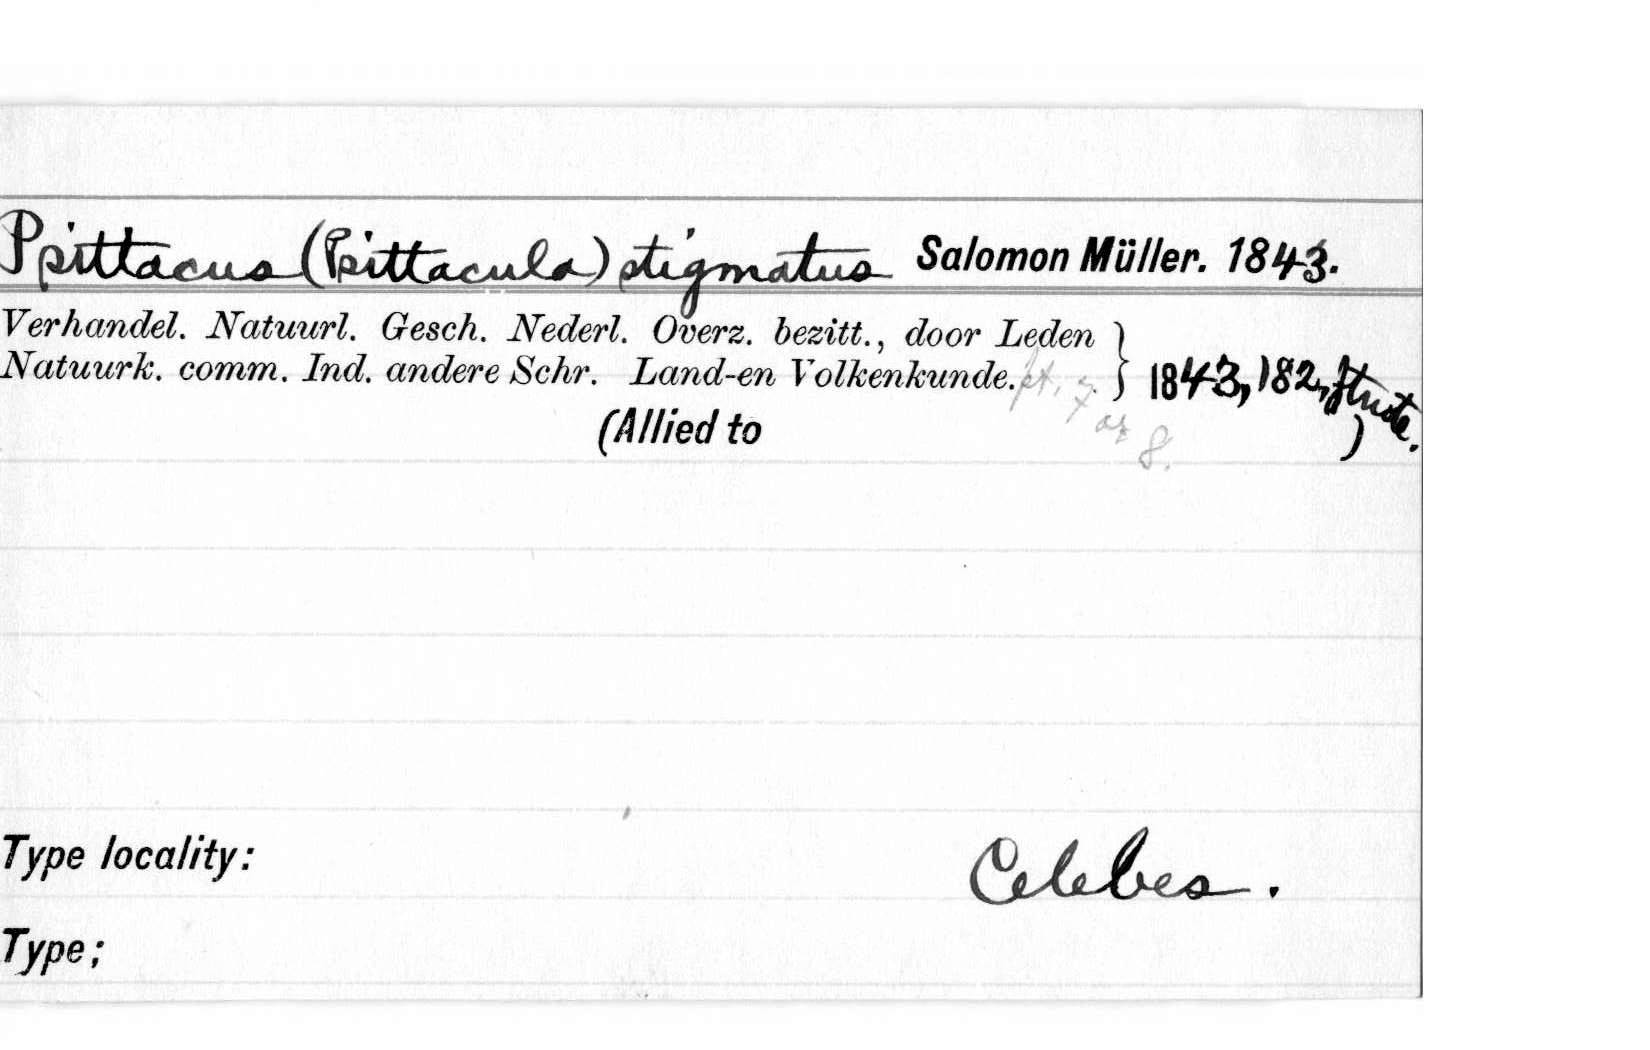 Psittacus (Psittacula) stigmatus Salomon Müller. 1843.
Verhandel. Natuurl. Gesch. Nederl. Overz. bezitt., door Leden }
Natuurk. comm. Ind. andere Schr. Land-en Volkenkunde. pt. 7 or 8. 1843, 182, ftnote.
(Allied to )
Type locality: Celebes.
Type;